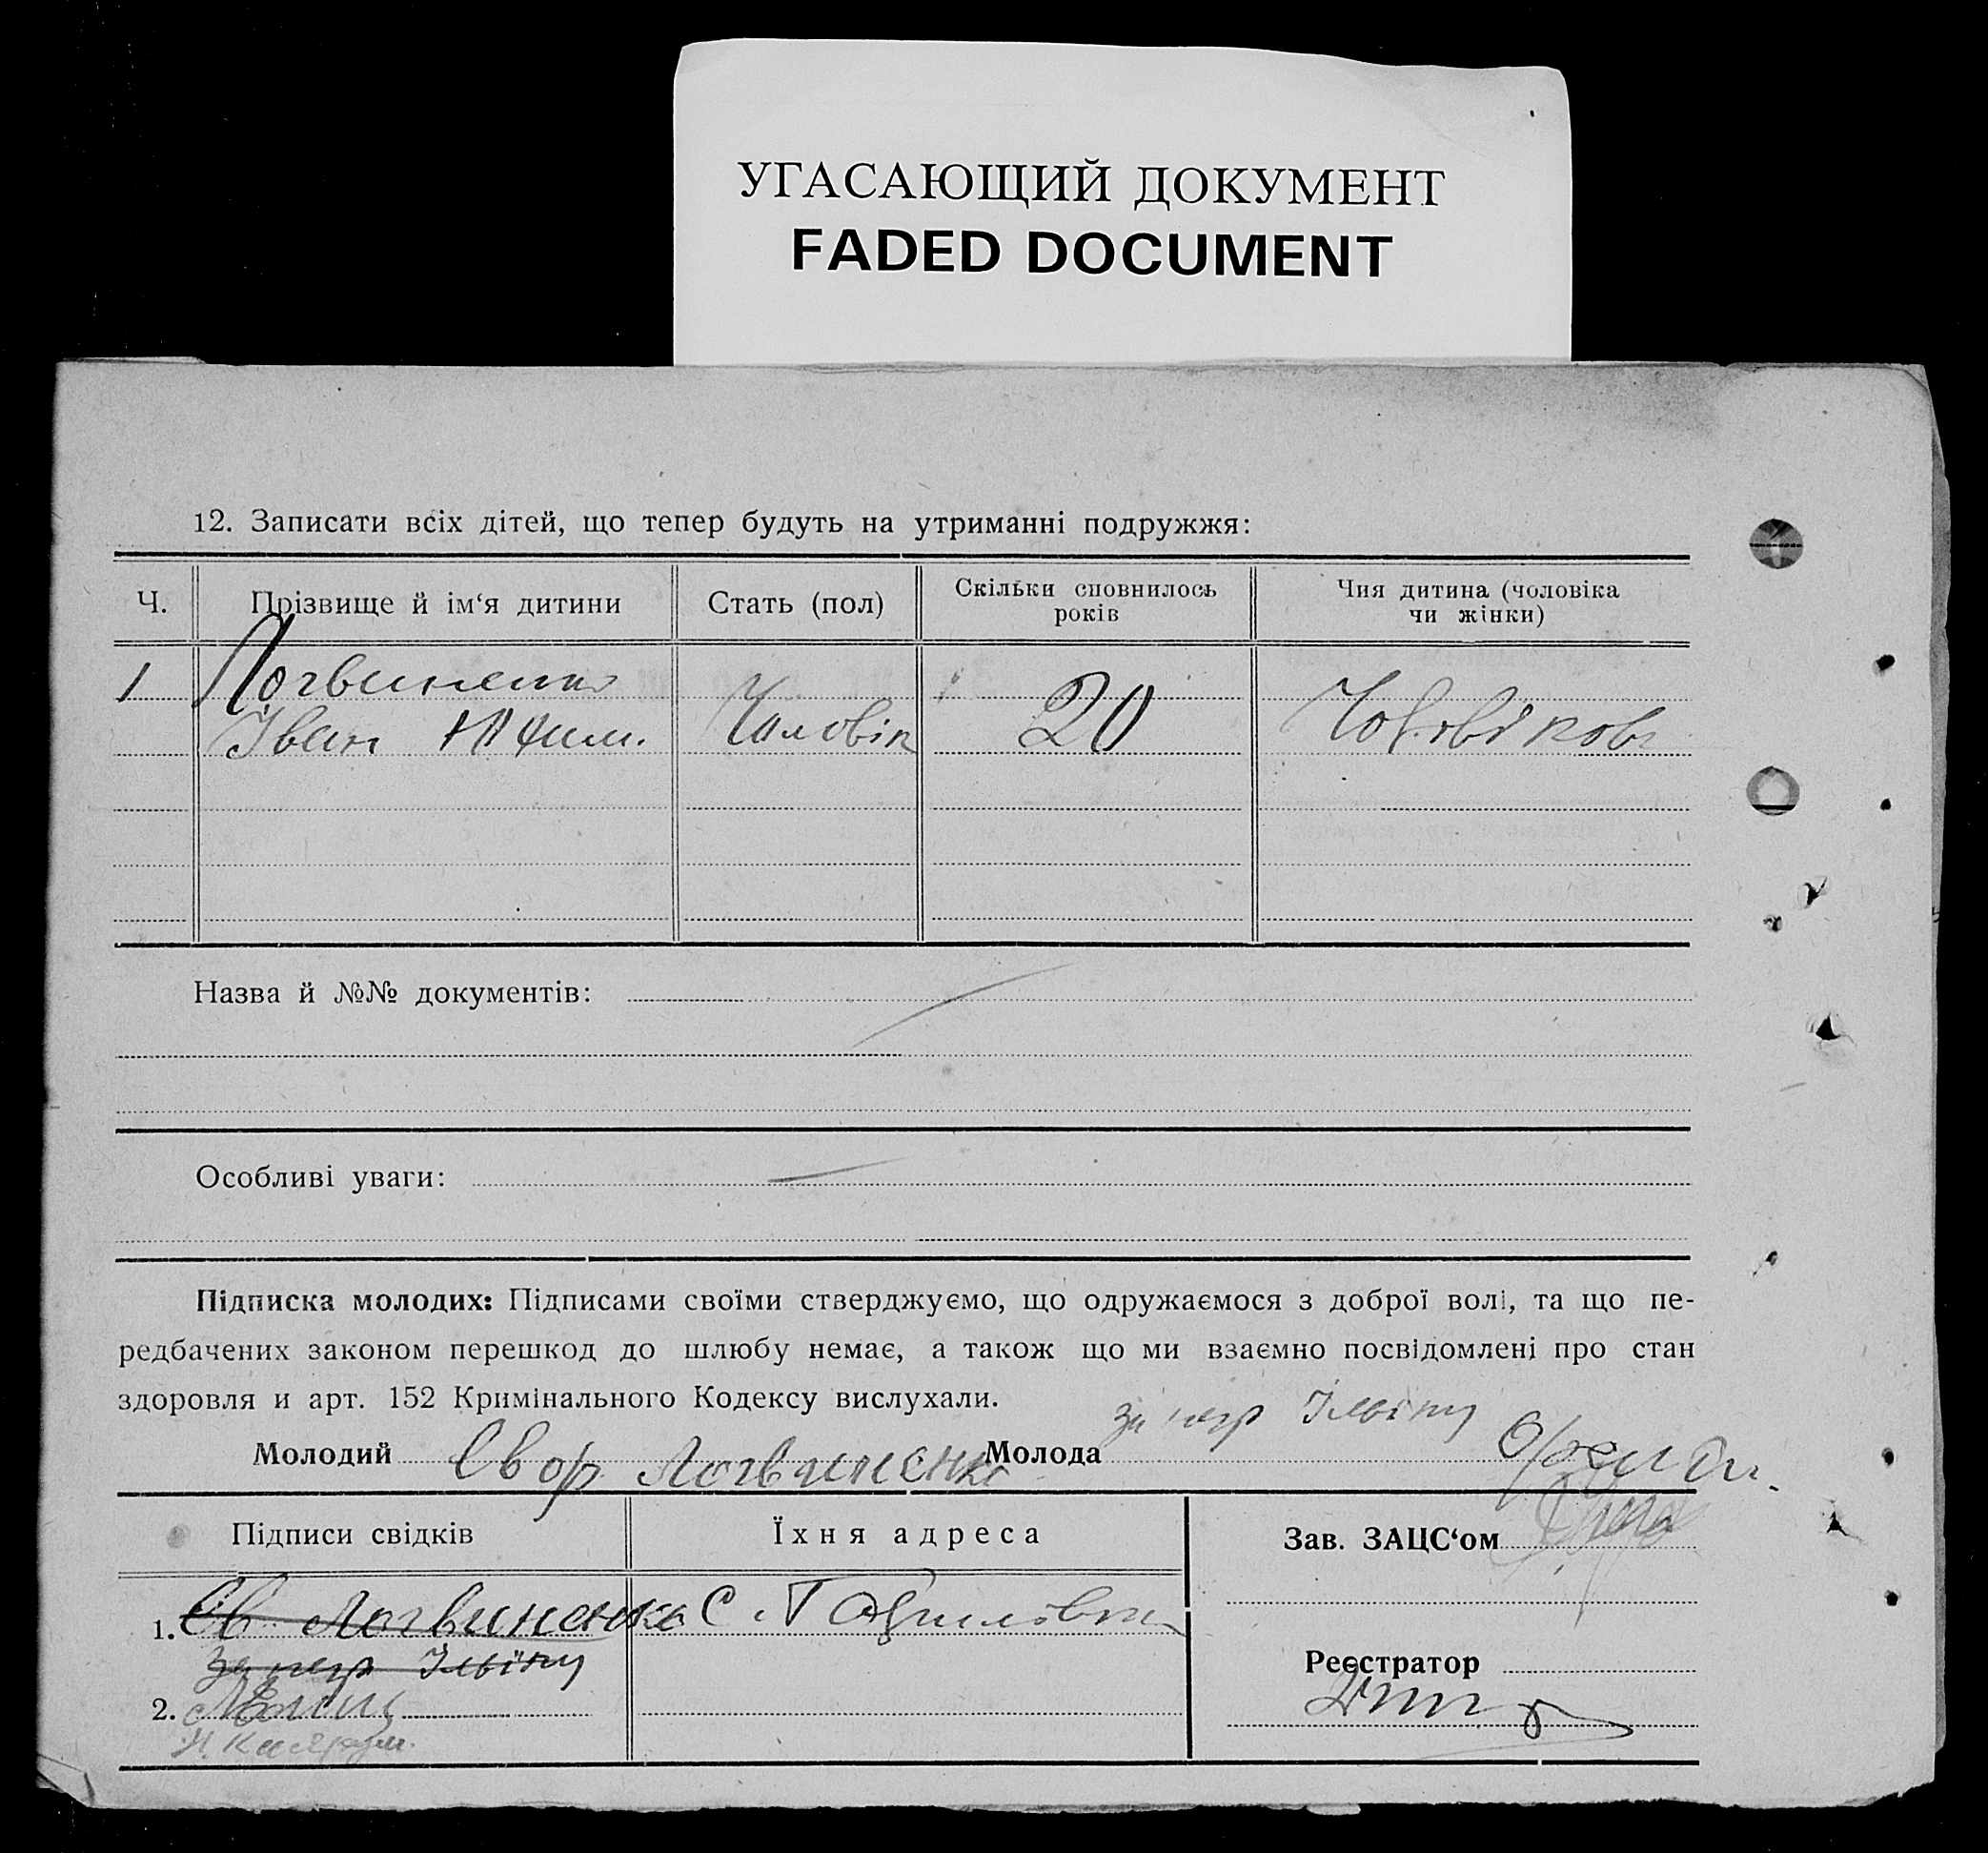 УГАСАЮЩИЙ ДОКУМЕНТ
FADED DOCUMENT
12. Записати всіх дітей, що тепер будуть на утриманні подружжя:
Ч. Прізвище й ім‘я дитини Стать (пол) Скільки сповнилось років Чия дитина (чоловіка чи жінки)
1 Логвиненко
Іван Юхим. Чоловік 20 Чоловіков
Назва й №№ документів:
Особливі уваги:
Підписка молодих: Підписами своїми стверджуємо, що одружаємося з доброї волі, та що пе-
редбачених законом перешкод до шлюбу немає, а також що ми взаємно посвідомлені про стан
здоровля и арт. 152 Кримінального Кодексу вислухали.
за негр Ільїну
Молодий Логвиненко Молода
Підписи свідків Їхня адреса Зав. ЗАЦС‘ом
1. Логвиненко С. Гаврилівка
за негр Ільїну Реєстратор
2.